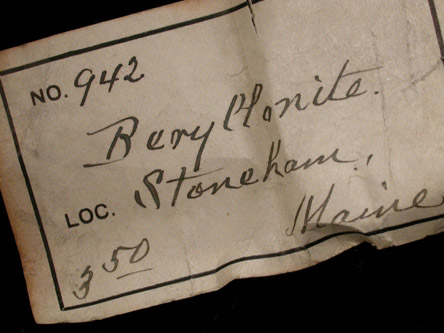 NO. 942
Beryllonite.
LOC. Stoneham,
Maine
3 50